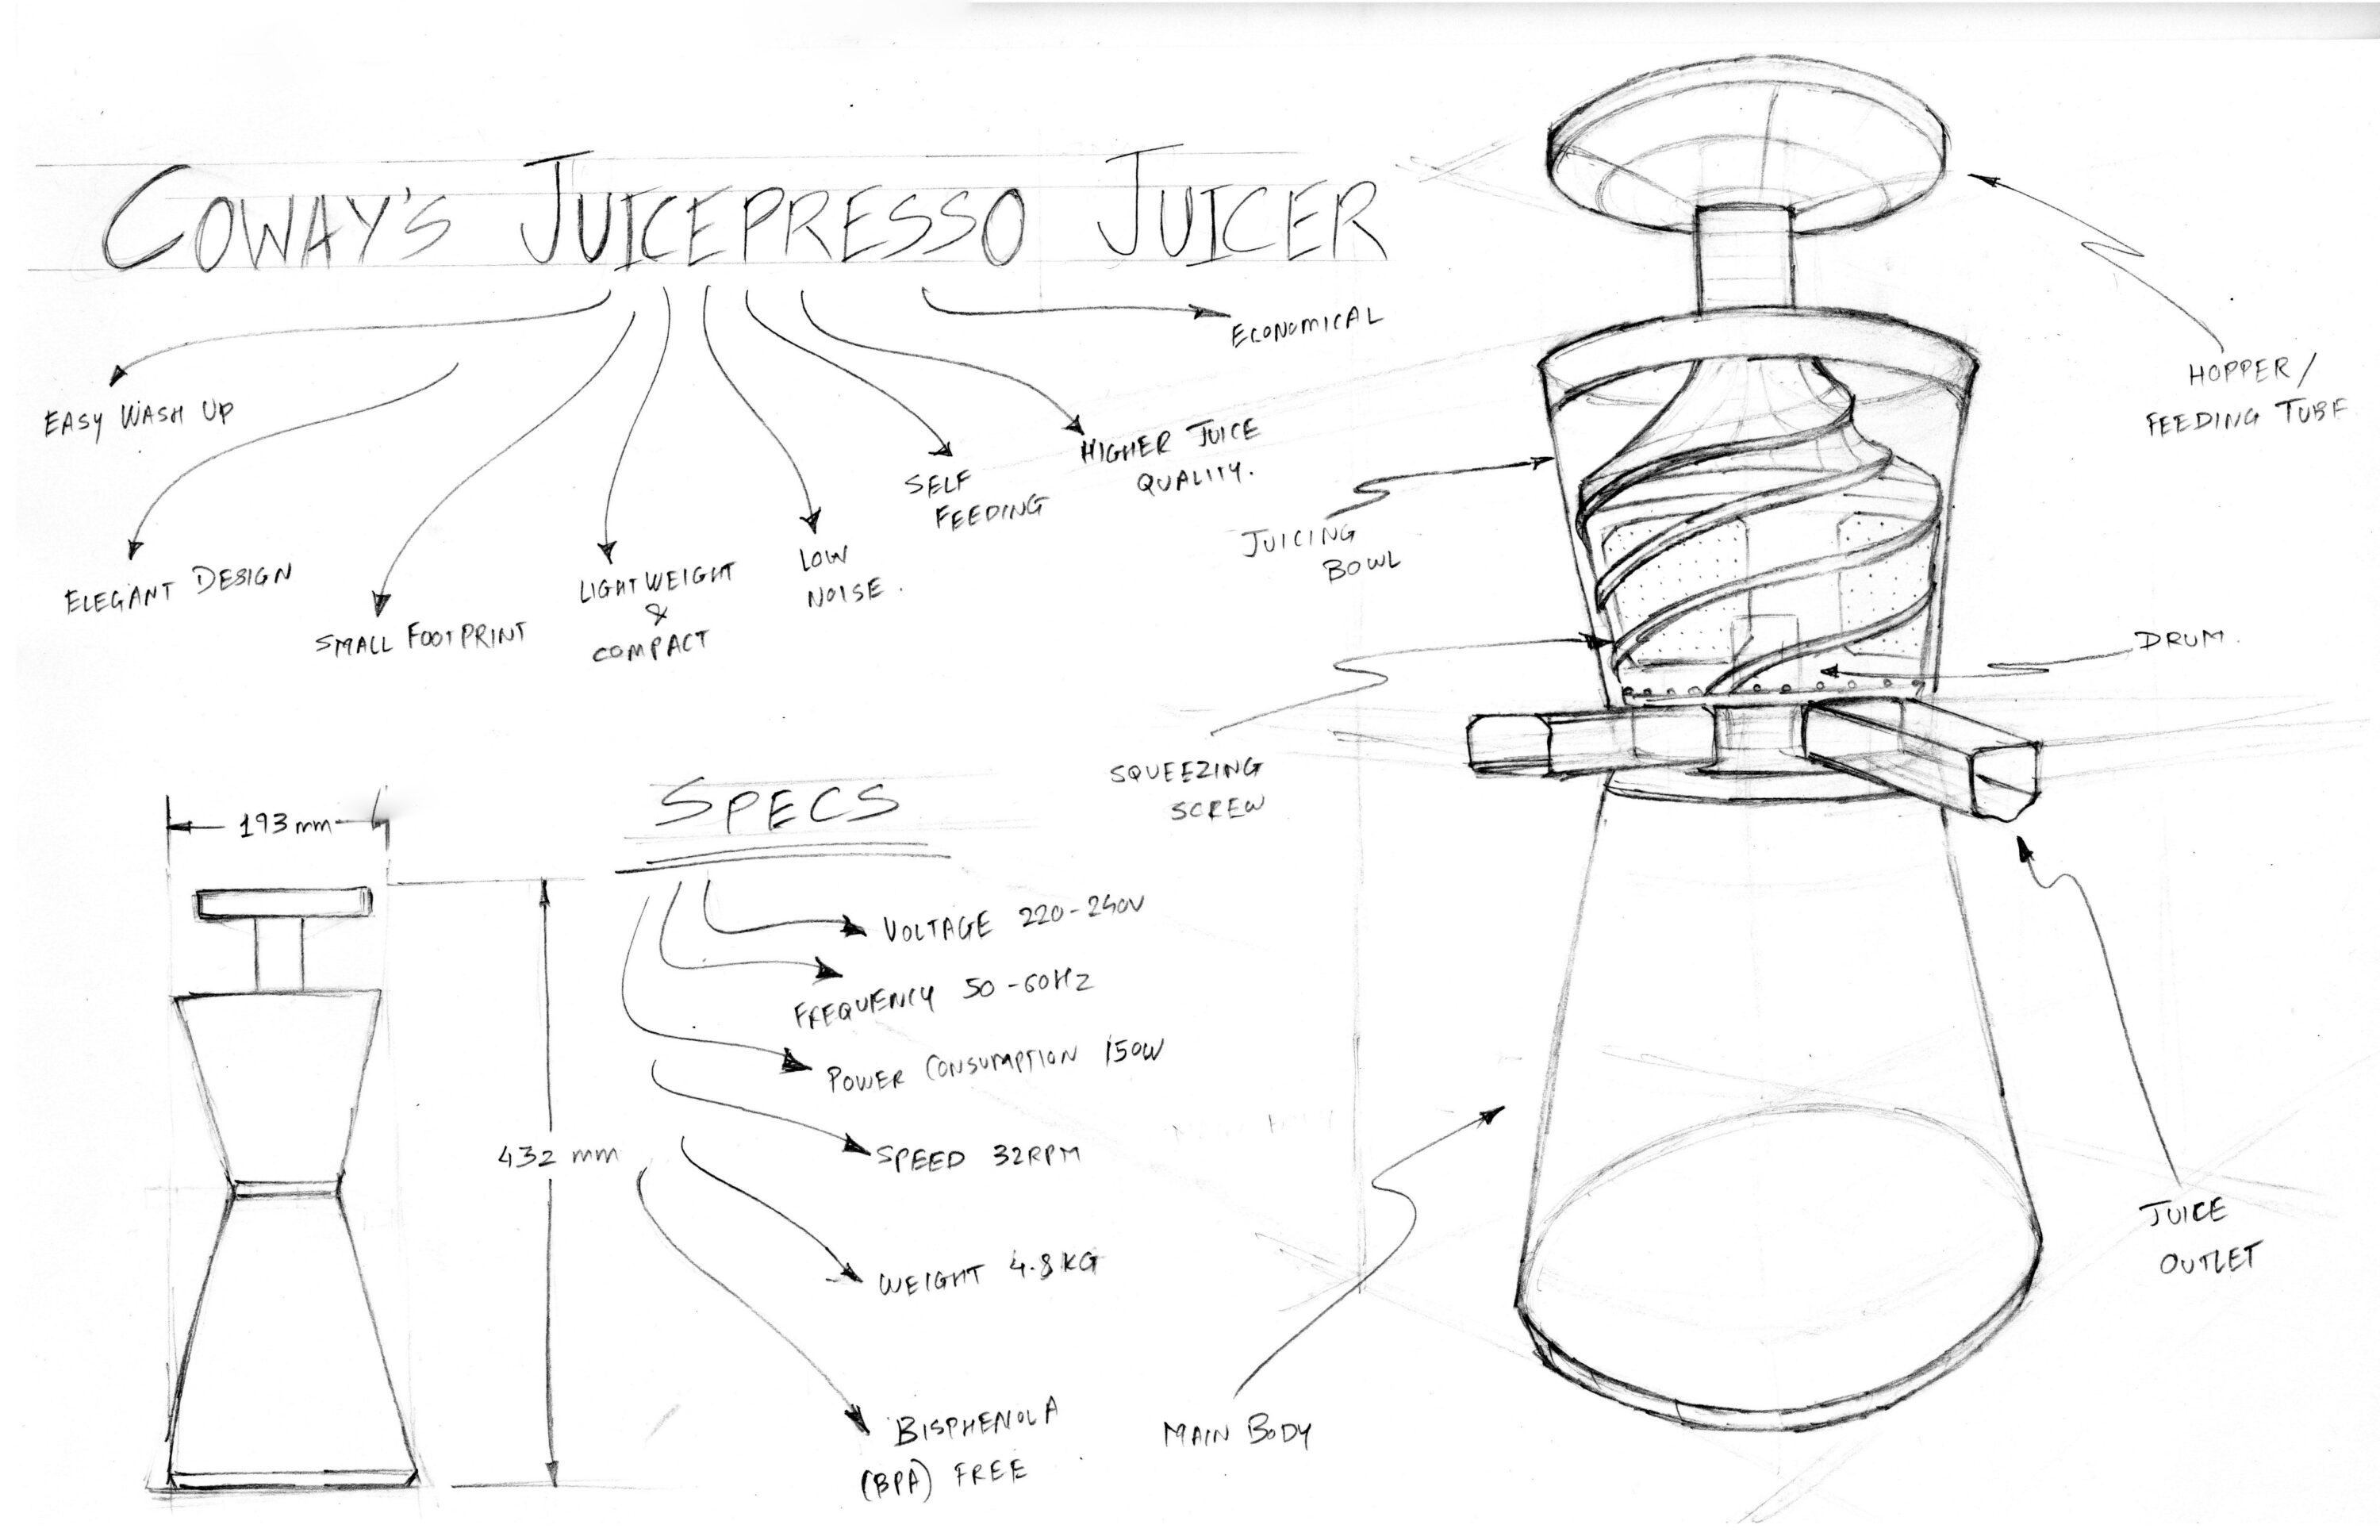 COWAY'S JUICEPRESSO JUICER
ECONOMICAL
EASY WASH UP
ELEGANT DESIGN
SMALL FOOTPRINT
LIGHTWEIGHT
&
COMPACT
LOW
NOISE.
SELF
FEEDING
HIGHER JUICE
QUALITY.
HOPPER/
FEEDING TUBE
JUICING
BOWL
DRUM.
SQUEEZING
SCREW
JUICE
OUTLET
MAIN BODY
193mm
432 mm
SPECS
VOLTAGE 220-240V
FREQUENCY 50-60Hz
POWER CONSUMPTION 150W
SPEED 32RPM
WEIGHT 4.8KG
BISPHENOL A
(BPA) FREE